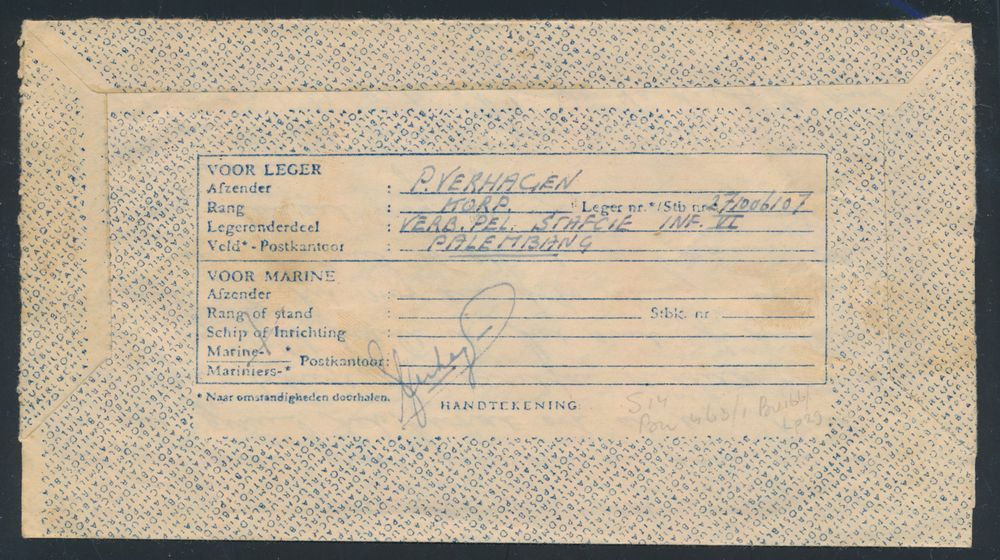 VOOR LEGER
Afzender : P. VERHAGEN
Rang : KORP. Leger nr.*/Stb nr 271006107
Legeronderdeel : VERB. PEL. STAFCIE INF. VI
Veld*-Postkantoor : PALEMBANG
VOOR MARINE
Afzender :
Rang of stand : Stbk. nr :
Schip of Inrichting :
Marine-*
Postkantoor:
Mariniers-*
* Naar omstandigheden doorhalen.
HANDTEKENING: